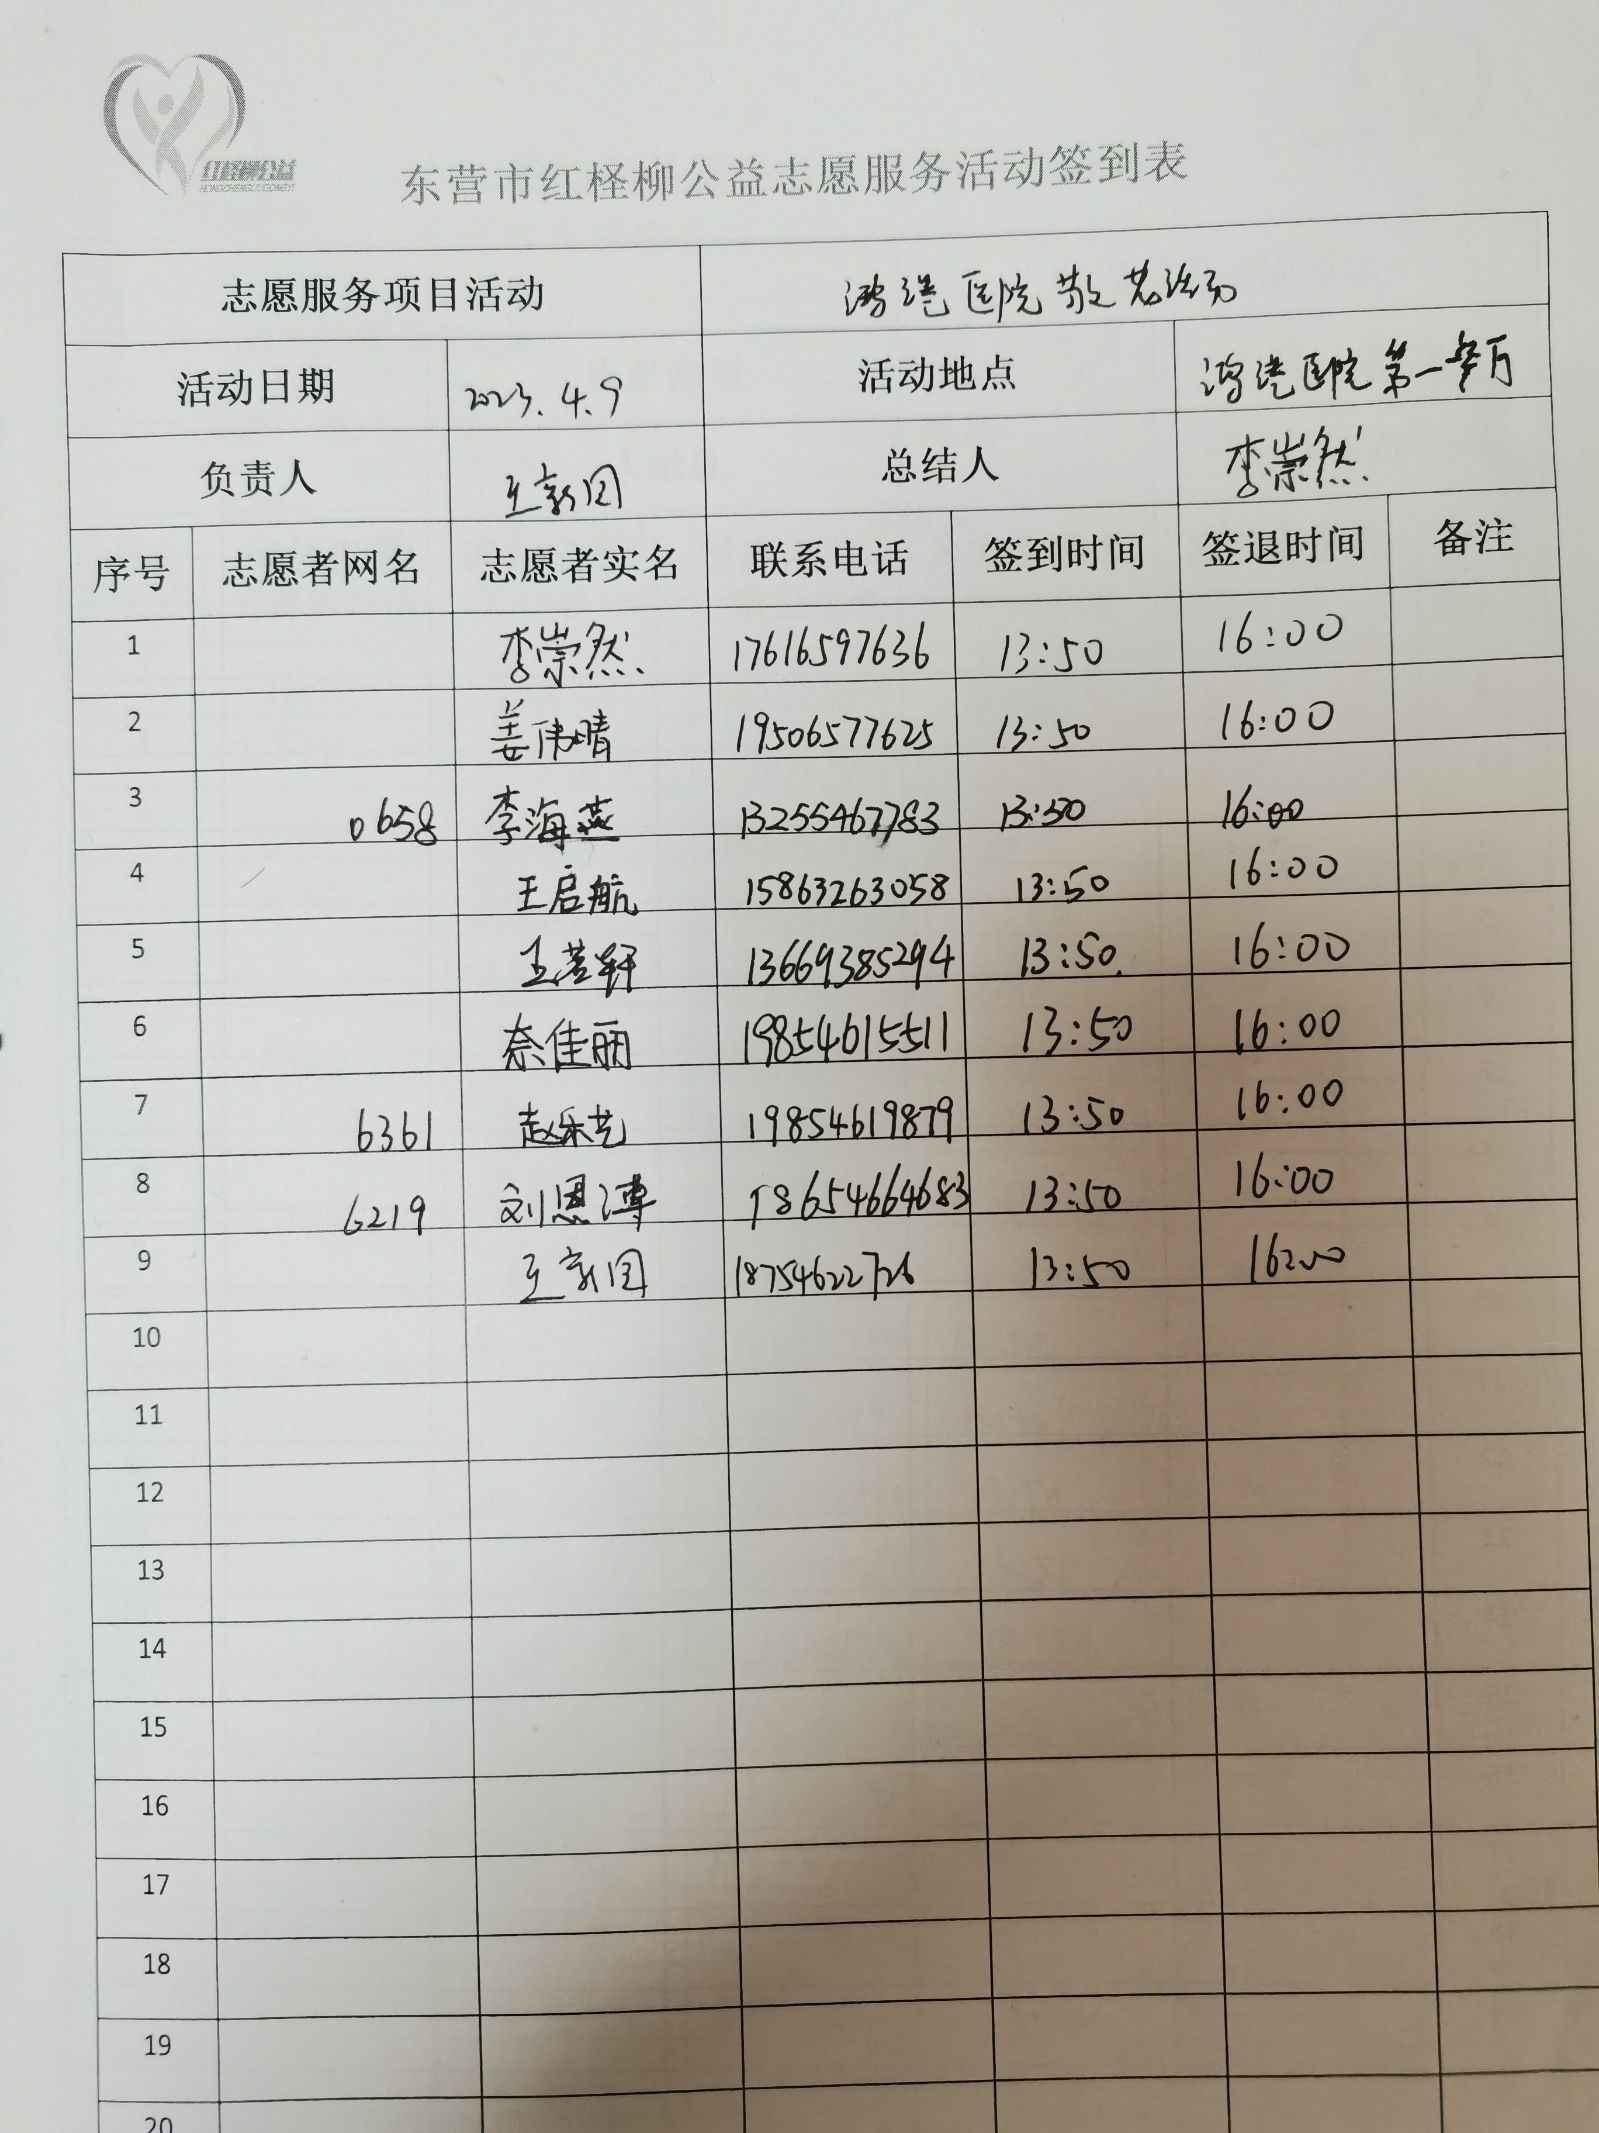 红柽柳公益
HONGCHENGLIUGONGYI
东营市红柽柳公益志愿服务活动签到表
志愿服务项目活动 鸿港医院敬老活动
活动日期 2023.4.9 活动地点 鸿港医院第一
负责人 王新团 总结人 李崇然
序号 志愿者网名 志愿者实名 联系电话 签到时间 签退时间 备注
1 李崇然 17616597636 13:50 16:00
2 姜伟晴 19506577625 13:50 16:00
3 0658 李海燕 13255467783 13:50 16:00
4 王启航 15863263058 13:50 16:00
5 王若轩 13669385294 13:50 16:00
6 佳丽 19854615511 13:50 16:00
7 6361 赵乐艺 19854619879 13:50 16:00
8 6219 刘恩溥 18654664683 13:50 16:00
9 王新团 18754622726 13:50 16:00
10
11
12
13
14
15
16
17
18
19
20